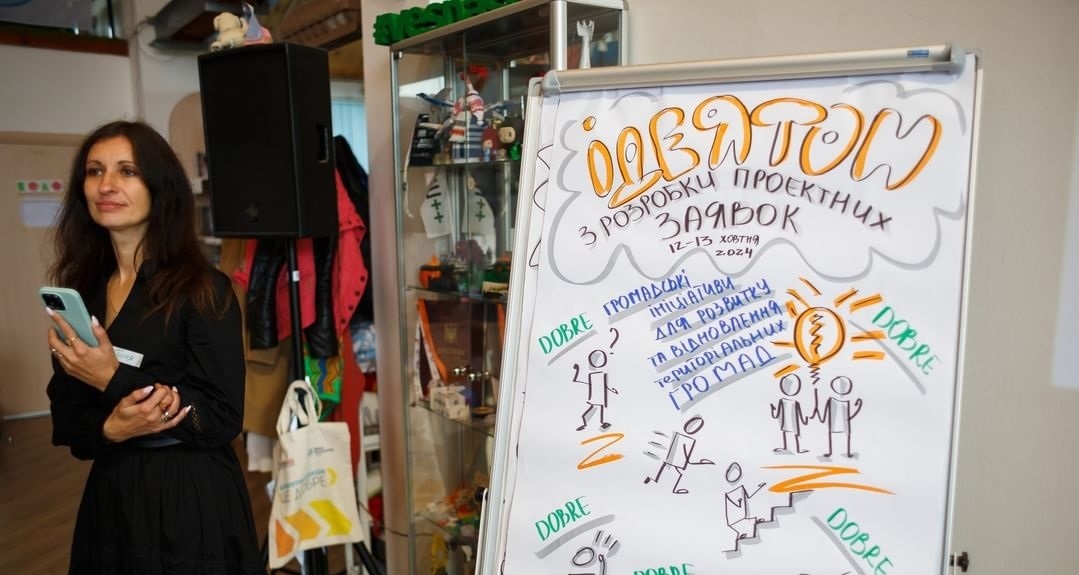 ІДЕЯТОН
З РОЗРОБКИ ПРОЕКТНИХ
ЗАЯВОК
12-13 ЖОВТНЯ
2024
ГРОМАДСЬКІ
ІНІЦІАТИВИ
ДЛЯ РОЗВИТКУ
ТА ВІДНОВЛЕННЯ
ТЕРИТОРІАЛЬНИХ
ГРОМАД
DOBRE
DOBRE
?
DOBRE
DOBRE
DOBRE
ЦЕ ДОБРЕ